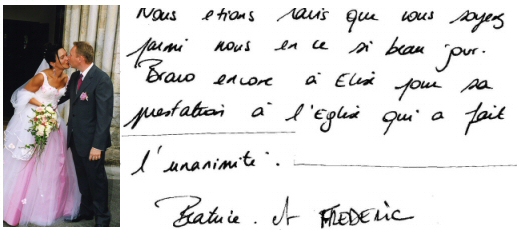 Nous etions ravis que vous soyez
parmi nous en ce si beau jour.
Bravo encore à Elise pour sa
prestation à l'Eglise qui a fait
l'unanimité.
Beatrice. et FREDERIC